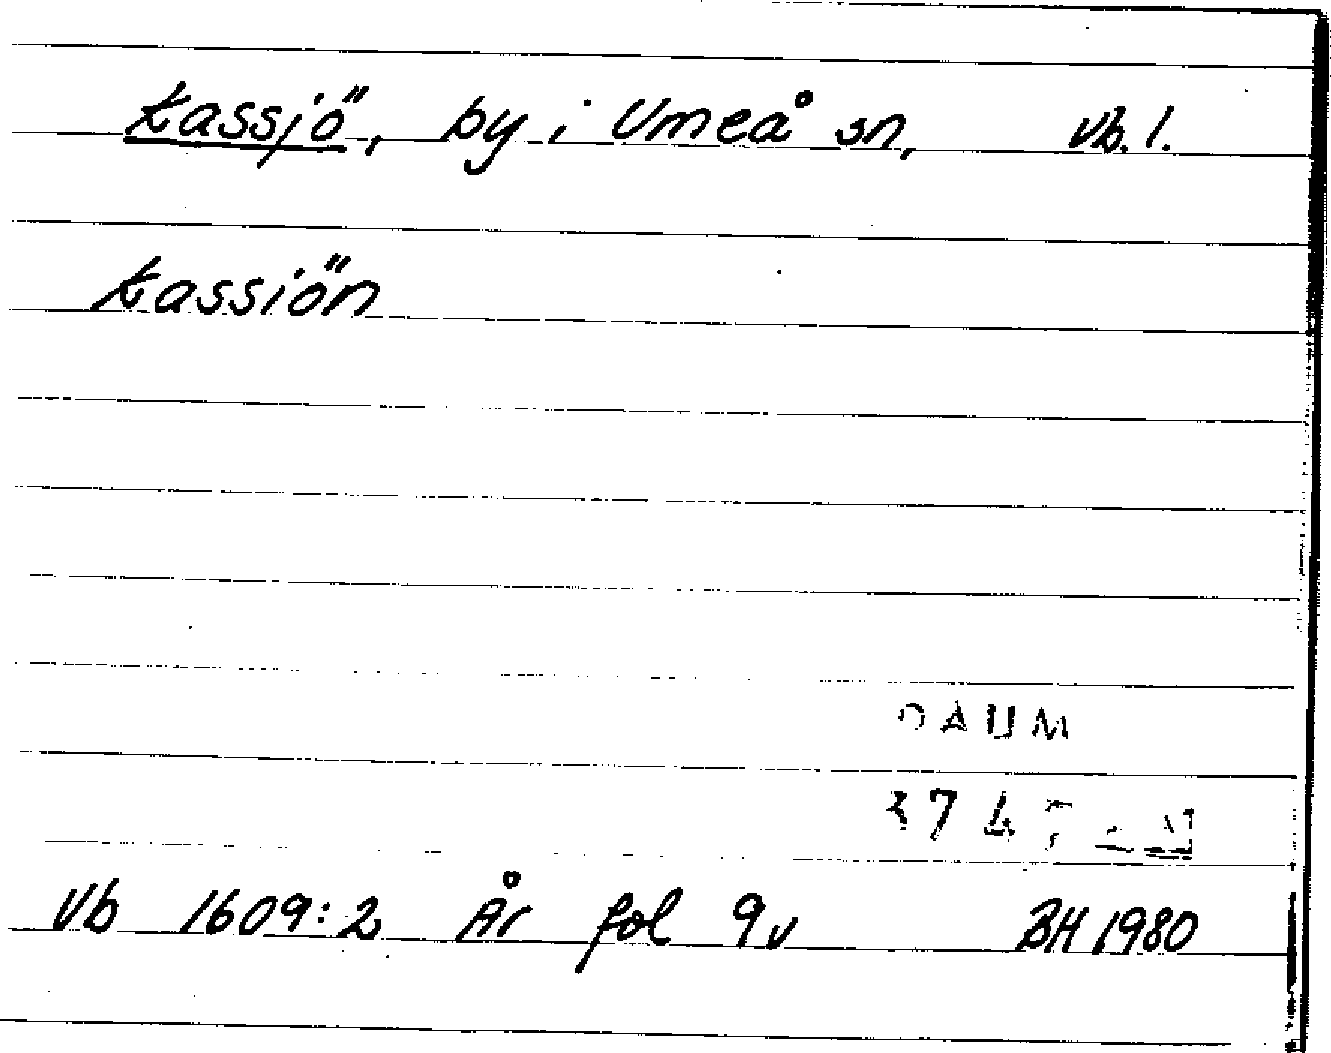 Kassjö, by i Umeå sn, Vb. l.
Kassiön
DAUM
374
Vb 1609:2 År fol 9v BH 1980